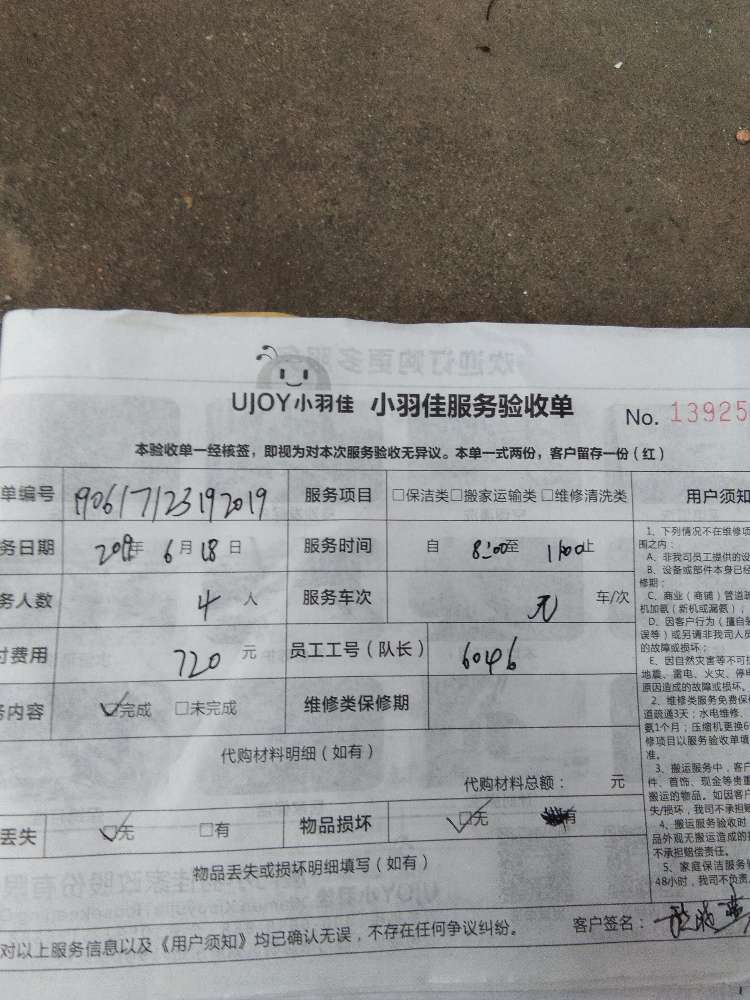 UJOY小羽佳 小羽佳服务验收单 No. 13925
本验收单一经核签，即视为对本次服务验收无异议。本单一式两份，客户留存一份（红）
单编号 190617123192019 服务项目 □保洁类□搬家运输类 □维修清洗类 用户须知
务日期 2019年 6月18日 服务时间 自 8:00至 11:00止
务人数 4 人 服务车次 无 车/次
付费用 720 元 员工工号（队长） 6046
务内容 ☑完成 □未完成 维修类保修期
代购材料明细（如有）
代购材料总额： 元
丢失 ☑无 □有 物品损坏 ☑无 有
物品丢失或损坏明细填写（如有）
对以上服务信息以及《用户须知》均已确认无误，不存在任何争议纠纷。 客户签名：
1、下列情况不在维修项
围之内：
A、非我司员工提供的设
B、设备或部件本身已经
修期；
C、商业（商铺）管道疏
机加氨（新机或漏氨）；
D、因客户行为（擅自装
误等）或另请非我司人员
的故障或损坏；
E、因自然灾害等不可抗
地震、雷电、火灾、停电
原因造成的故障或损坏。
2、维修类服务免费保修
道疏通3天；水电维修、
氨1个月；压缩机更换6
修项目以服务验收单填
准。
3、搬运服务中，客户
件、首饰、现金等贵重
搬运的物品。如因客户
失/损坏，我司不承担赔
4、搬运服务验收时
品外观无搬运造成的损
不承担赔偿责任。
5、家庭保洁服务
48小时，我司不负责